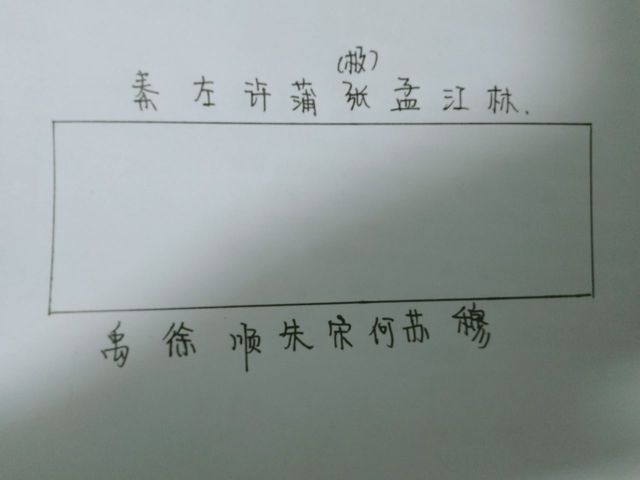 (极)
秦 左 许 蒲 张 孟 江 林.
禹 徐 顺 朱 宋 何 苏 穆